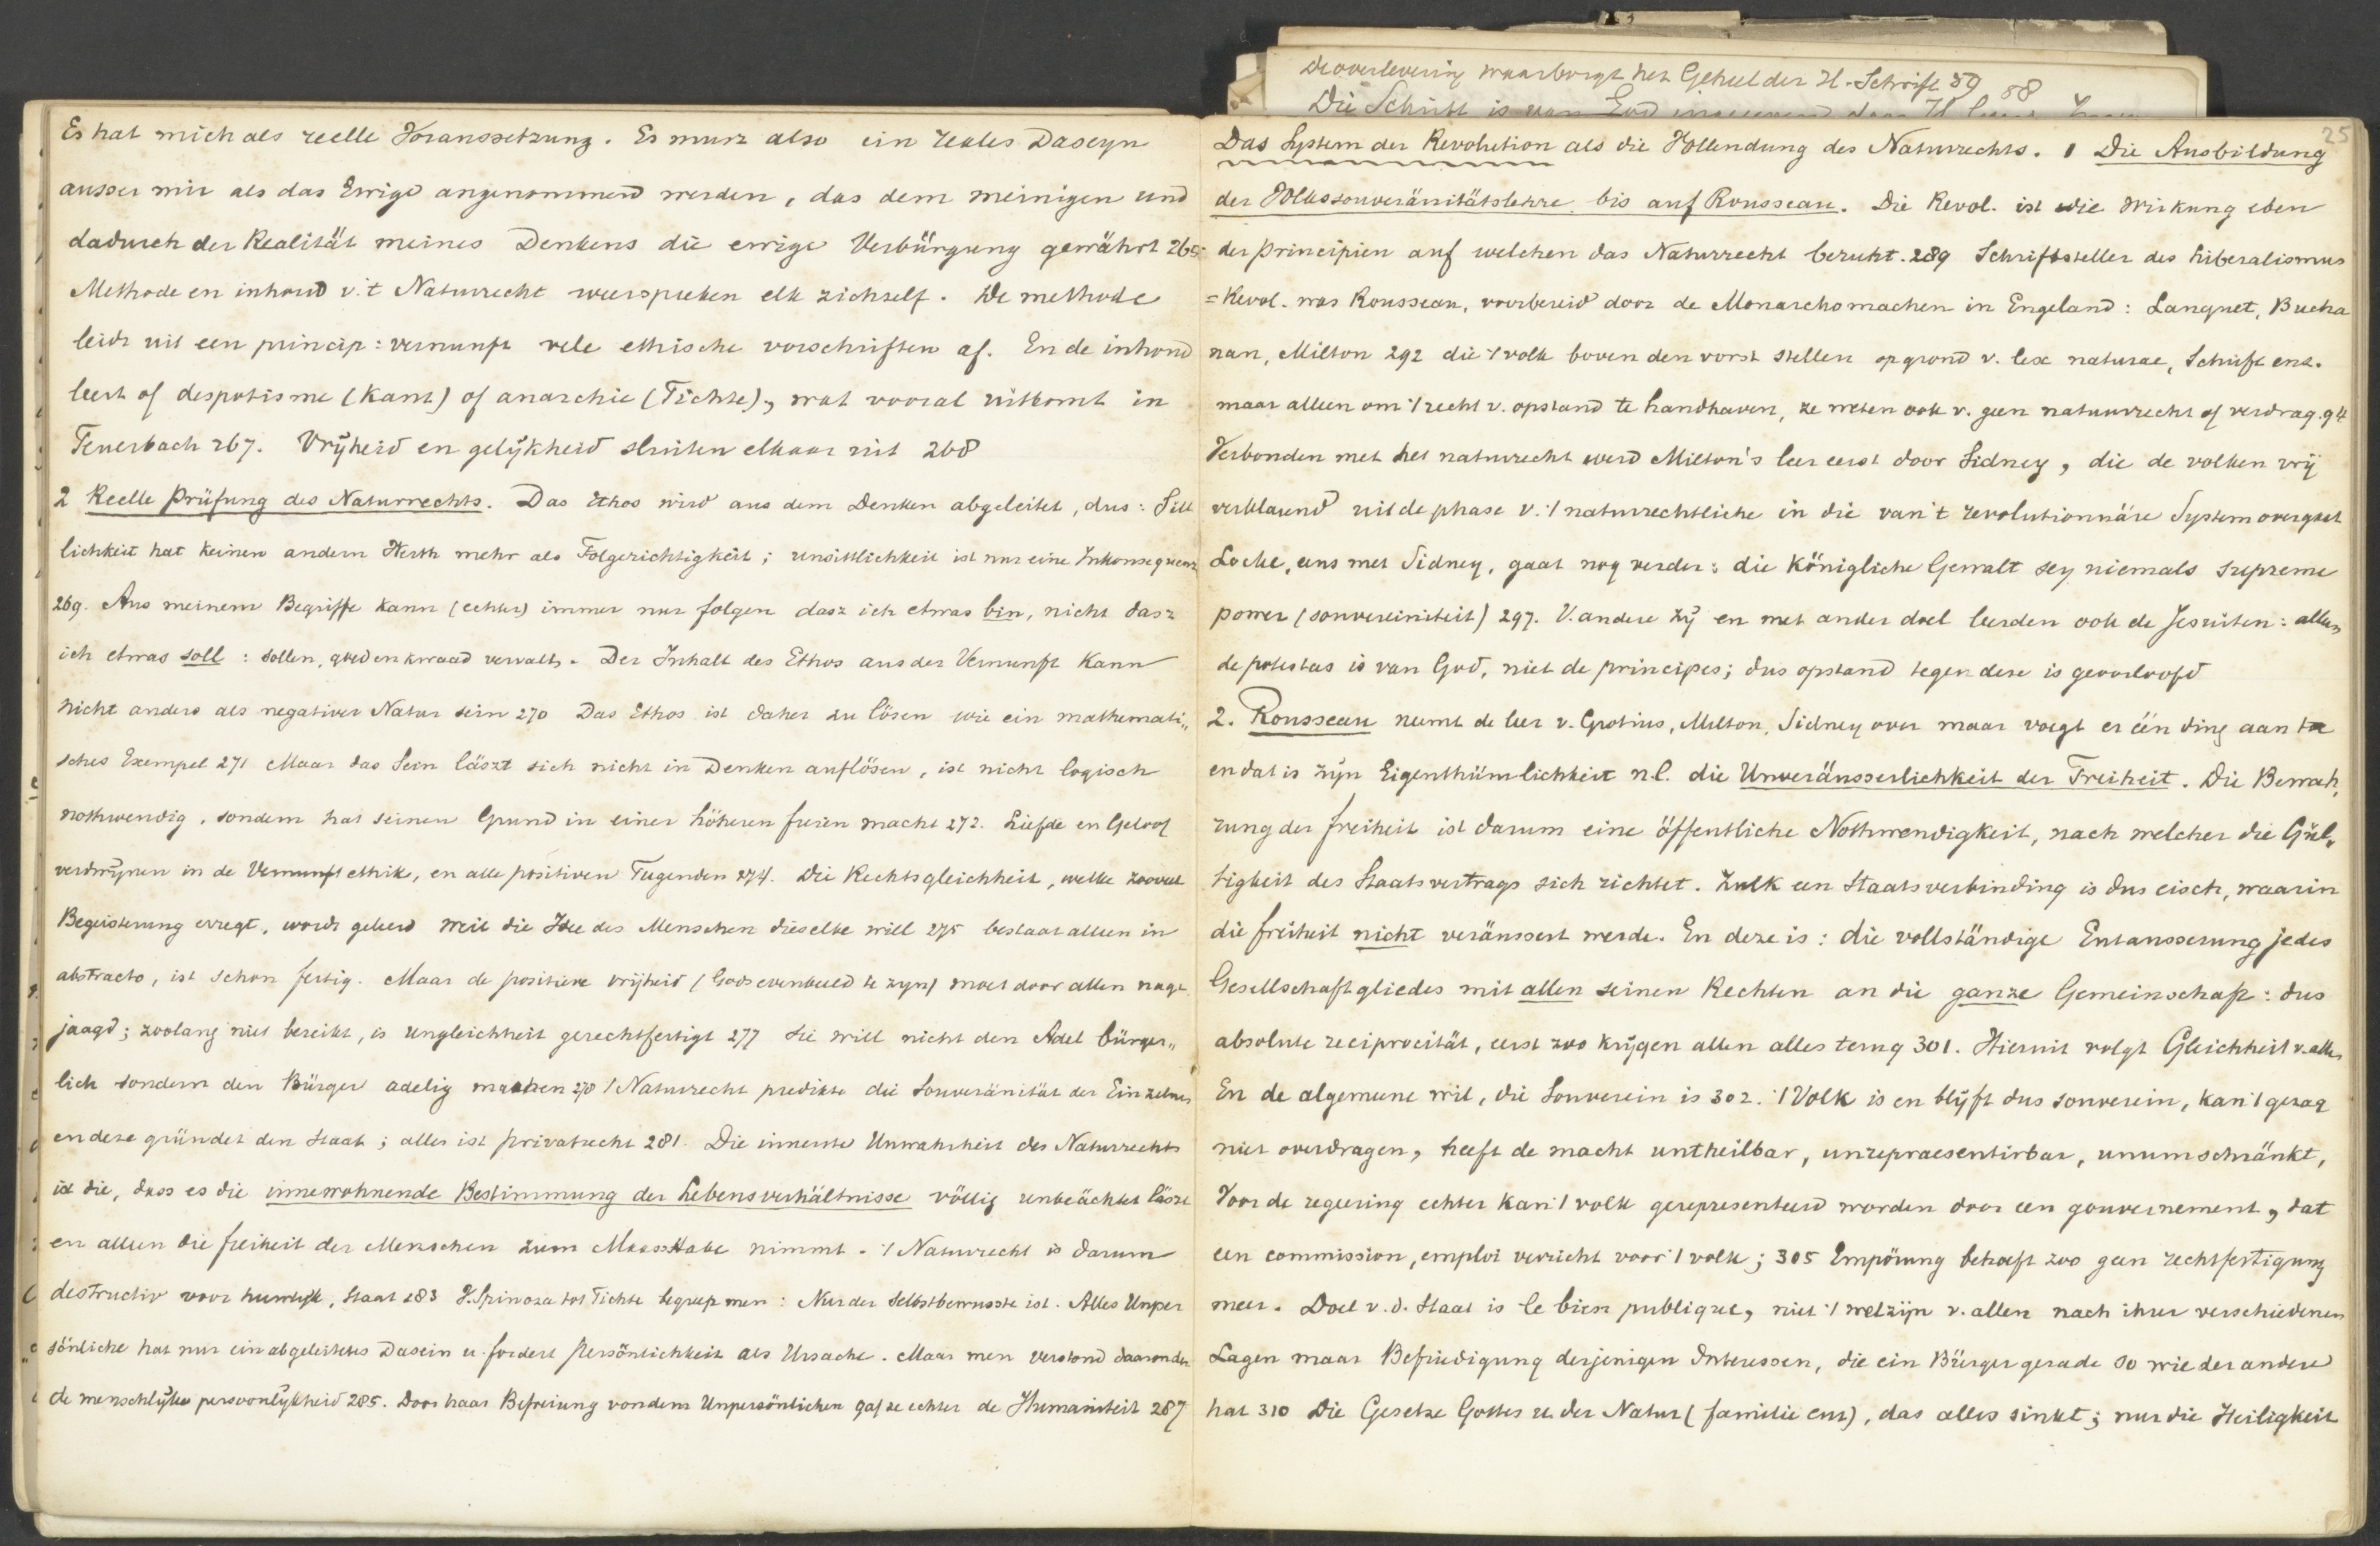 De overlevering waarborgt het Geheel der H. Schrift 59 58
Die Schrift is van God
Es hat mich als reelle Voraussetzung. Es musz also ein reales Daseyn
ausser mir als das Ewige angenommen werden, das dem meinigen und
dadurch der Realität meines Denkens die ewige Verbürgung gewährt 265
Methode en inhoud v. 't Naturrecht weerspreken elk zichzelf. De methode
leidt uit een princip: vernunft vele ethische vorschriften af. En de inhoud
leert of despotisme (Kant) of anarchie (Fichte), wat vooral uitkomt in
Feuerbach 267. Vrijheid en gelijkheid sluiten elkaar uit 268
2 Reelle Prüfung des Naturrechts. Das Ethos wird aus dem Denken abgeleitet, dus: Sitt
lichkeit hat keinen andern Werth mehr als Folgerichtigkeit; unsittlichkeit ist nur eine Inkonsequenz
269. Aus meinem Begriffe kann (echter) immer nur folgen dasz ich etwas bin, nicht dasz
ich etwas soll: sollen, goed en kwaad vervalt. Der Inhalt des Ethos aus der Vernunft kann
nicht anders als negativer Natur sein 270 Das Ethos ist daher zu lösen wie ein mathemati„
sches Exempel 271 Maar das Sein läszt sich nicht in Denken auflösen, ist nicht logisch
nothwendig, sondern hat seinen Grund in einer höheren freien macht 272. Liefde en Geloof
verdwijnen in de Vernunftethik, en alle positiven Tugenden 274. Die Rechtsgleichheit, welke zooveel
Begeisterung erregt, wordt geleerd weil die Idee des Menschen dieselbe will 275 bestaat alleen in
abstracto, ist schon fertig. Maar de positieve vrijheid (Gods evenbeeld te zijn) moet door allen nage
jaagd; zoolang niet bereikt, is ungleichheit gerechtfertigt 277 Sie will nicht den Adel bürger„
lich sondern den Bürger adelig machen 278 't Naturrecht predikte die Souveränität der Einzelnen
en deze gründet den Staat; alles ist privatrecht 281. Die innerste Unwahrheit des Naturrechts
ist die, dass es die innewohnende Bestimmung der Lebensverhältnisse völlig unbeächtet läszt
en alleen die freiheit der Menschen zum Maasstabe nimmt. 't Naturrecht is darum
destructiv voor huwlijk, Staat 283 V. Spinoza tot Fichte begreep men: Nur der Selbstbewusste ist. Alles Unper
sönliche hat nur ein abgeleitetes Dasein u. fordert Persönlichkeit als Ursache. Maar men verstond daaronder
de menschlijke persoonlijkheid 285. Door haar Befreiung von dem Unpersönlichen gaf ze echter de Humaniteit 287
25
Das System der Revolution als die Vollendung des Naturrechts. 1 Die Ausbildung
der Volkssouveränitätslehre bis auf Rousseau. Die Revol. ist die Wirkung eben
der Principien auf welchen das Naturrecht beruht. 289 Schriftsteller des Liberalismus
= Revol. was Rousseau, voorbereid door de Monarchomachen in Engeland: Languet, Bucha
nan, Milton 292 die 't volk boven den vorst stellen op grond v. lex naturae, Schrift enz.
maar alleen om 't recht v. opstand te handhaven, ze weten ook v. geen natuurrecht of verdrag. 94
Verbonden met het naturrecht werd Milton's leer eerst door Sidney, die de volken vrij
verklarend uit de phase v. 't naturrechtliche in die van 't revolutionnäre System overgaat
Locke, eens met Sidney, gaat nog verder: die Königliche Gewalt sey niemals supreme
power (souvereiniteit) 297. V. andere zij en met ander doel leerden ook de Jesuiten: alleen
de potestas is van God, niet de principes; dus opstand tegen deze is geoorloofd
2. Rousseau neemt de leer v. Grotius, Milton, Sidney over maar voegt er één ding aan toe
en dat is zijn Eigenthümlichkeit n.l. die Unveräusserlichkeit der Freiheit. Die Bewah„
rung der freiheit ist darum eine öffentliche Nothwendigkeit, nach welcher die Gül„
tigkeit des Staatsvertrags sich richtet. Zulk een Staatsverbinding is dus eisch, waarin
die freiheit nicht veräussert werde. En deze is: die vollständige Entausserung jedes
Gesellschaftgliedes mit allen seinen Rechten an die ganze Gemeinschaft: dus
absolute reciprocität, eerst zoo krijgen allen alles terug 301. Hieruit volgt Gleichheit v. allen
En de algemeene wil, die Souverein is 302. 't Volk is en blijft dus souverein, kan 't gezag
niet overdragen, heeft de macht untheilbar, unrepraesentirbar, unumschränkt,
Voor de regeering echter kan 't volk gerepresenteerd worden door een gouvernement, dat
een commission, emploi verricht voor 't volk; 305 Empörung behoeft zoo geen rechtfertigung
meer. Doel v. d. Staat is le bien publique, niet 't welzijn v. allen nach ihrer verschiedenen
Lagen maar Befriedigung derjenigen Interessen, die ein Bürger gerade so wie der andere
hat 310 Die Gesetze Gottes u. der Natur (familie enz), das alles sinkt; nur die Heiligkeit